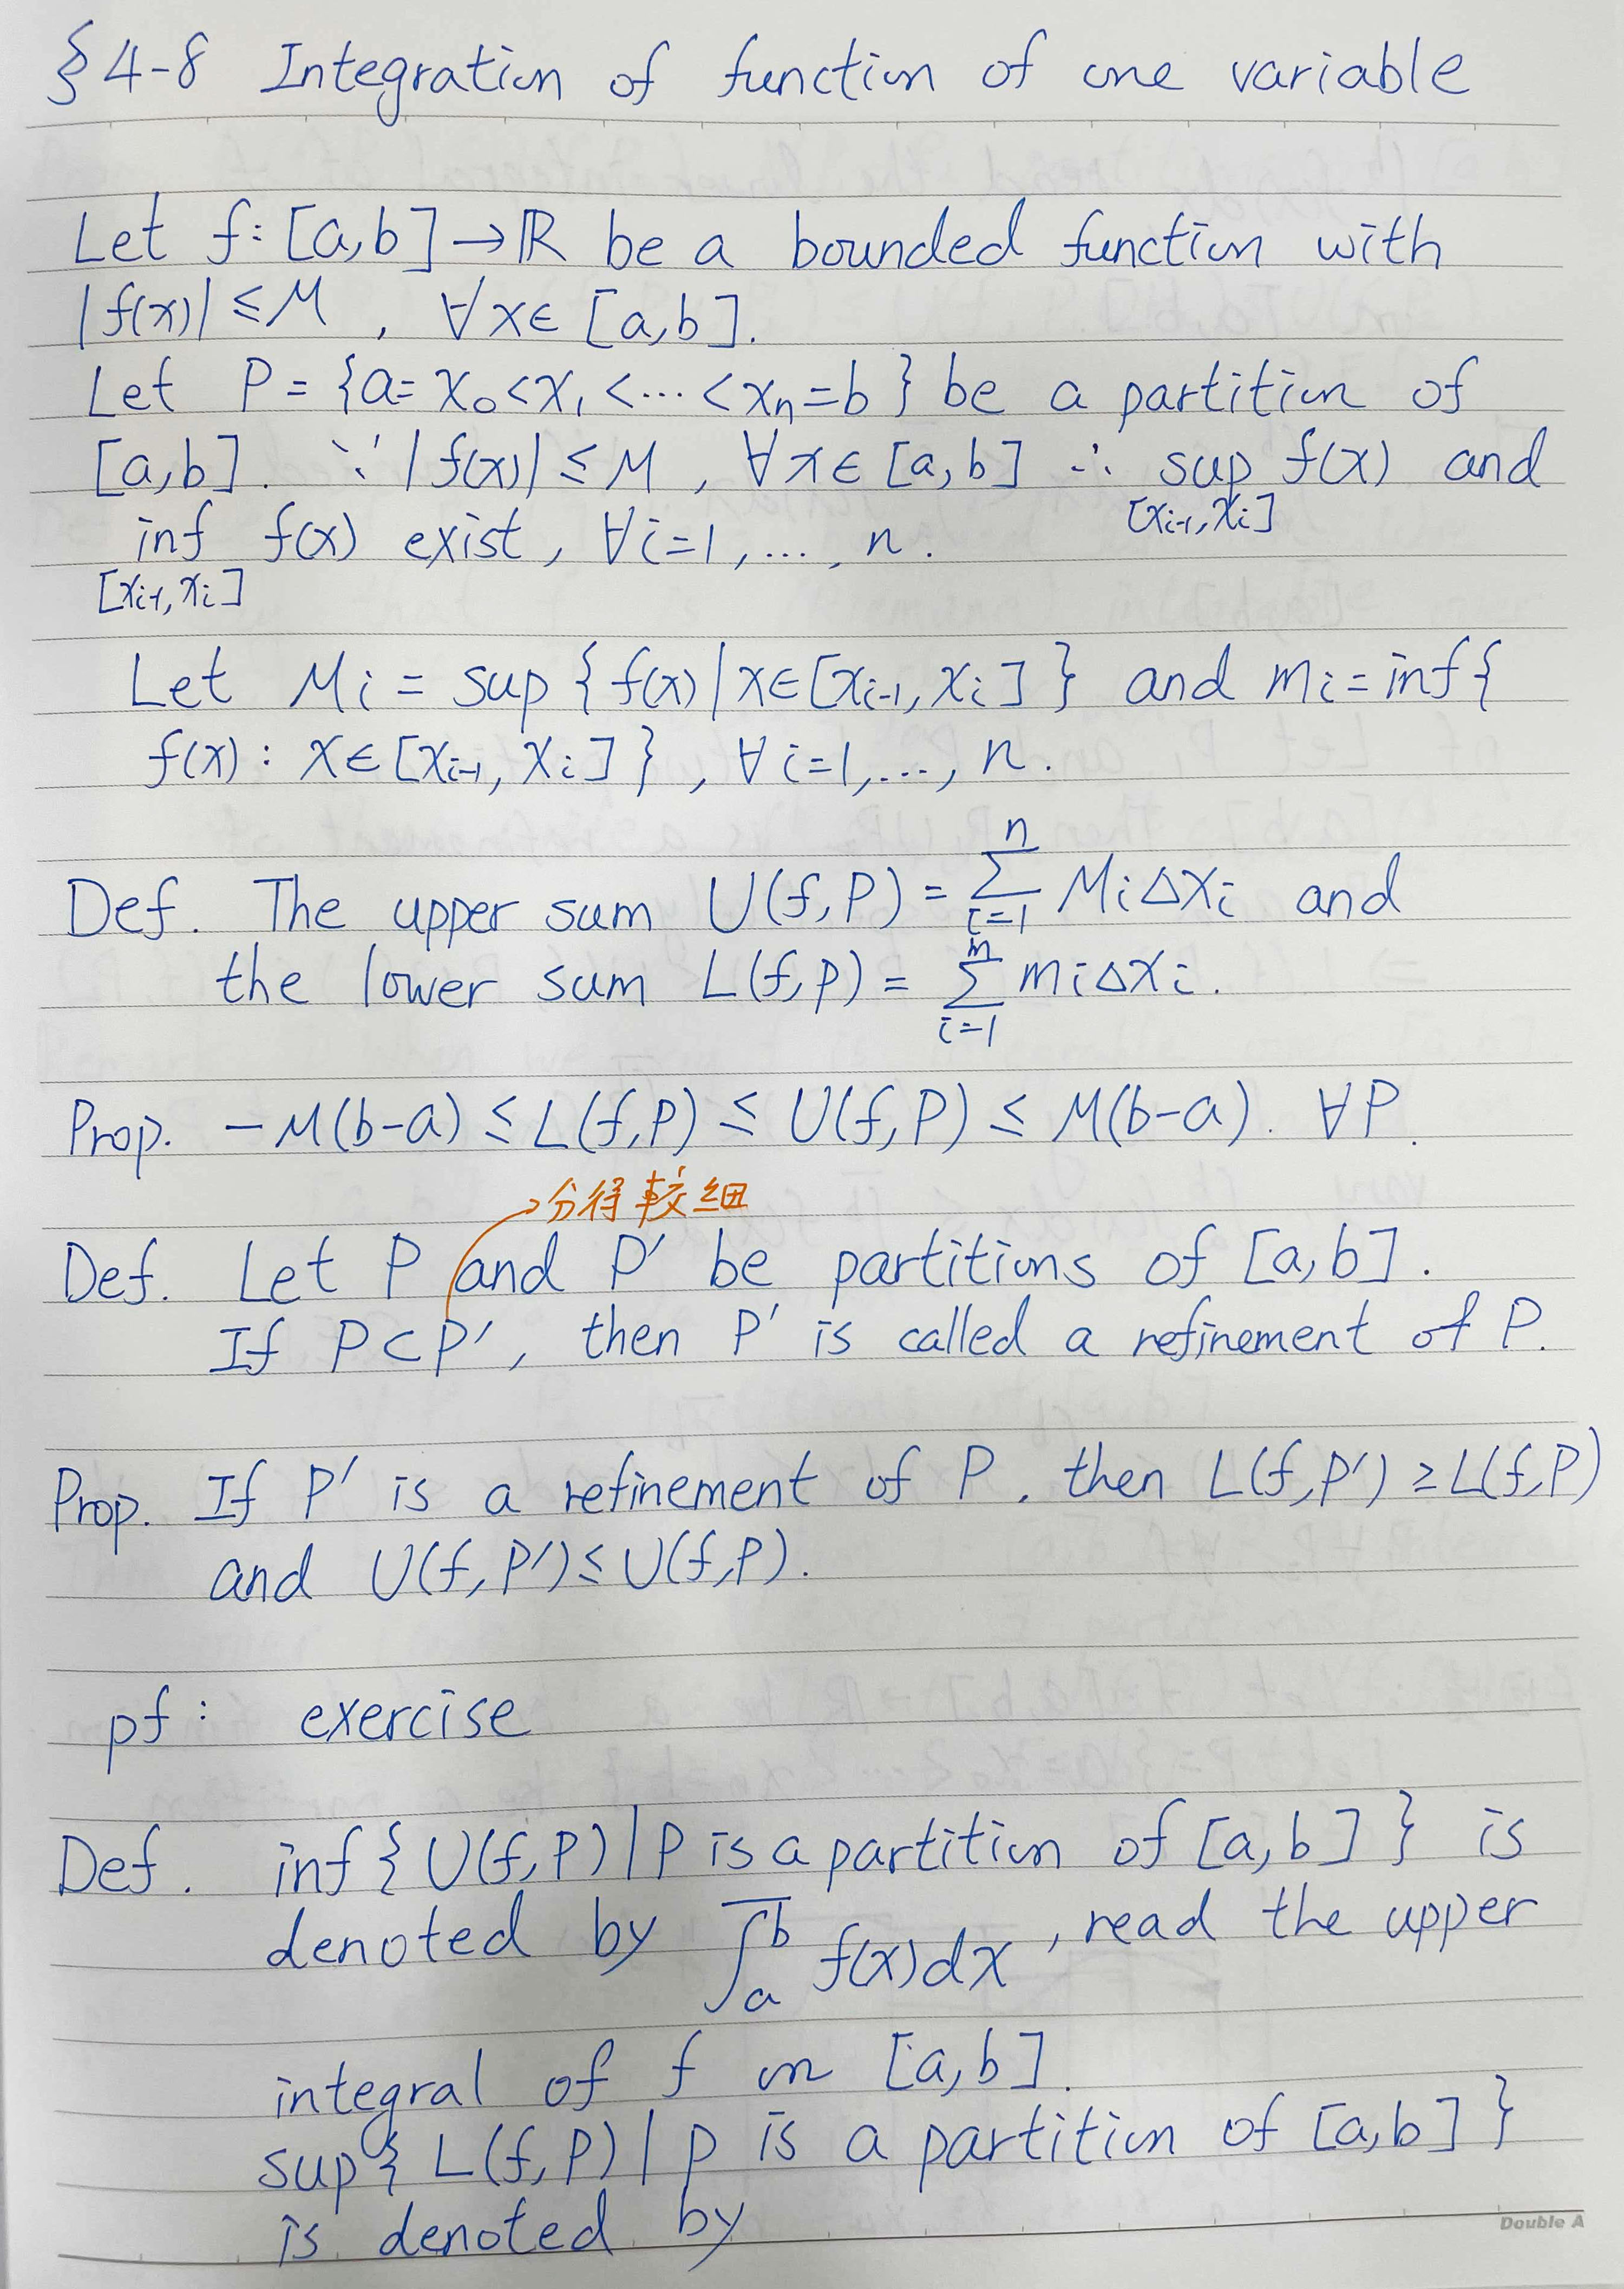 §4-8 Integration of function of one variable
Let f: [a,b]→ℝ be a bounded function with
|f(x)|≤M , ∀x∈ [a,b].
Let P = {a= x₀<x₁<⋯<xₙ=b} be a partition of
[a,b]. ∵ |f(x)|≤M , ∀x∈[a,b] ∴ sup f(x) and
[xᵢ₋₁, xᵢ]
inf f(x) exist, ∀i=1,…, n.
[xᵢ₋₁, xᵢ]
Let Mᵢ = sup {f(x)|x∈[xᵢ₋₁, xᵢ]} and mᵢ=inf{
f(x) : x∈[xᵢ₋₁, xᵢ]} , ∀i=1,…, n.
Def. The upper sum U(f,P) = ∑ⁿᵢ₌₁ MᵢΔxᵢ and
the lower sum L(f,P) = ∑ⁿᵢ₌₁ mᵢΔxᵢ.
Prop. -M(b-a) ≤ L(f,P) ≤ U(f,P) ≤ M(b-a). ∀P.
分得較細
Def. Let P and P' be partitions of [a,b].
If P⊂P', then P' is called a refinement of P.
Prop. If P' is a refinement of P, then L(f,P') ≥L(f,P)
and U(f,P')≤U(f,P).
pf: exercise
Def. inf{U(f,P)|P is a partition of [a,b]} is
denoted by ∫̅ₐᵇ f(x)dx , read the upper
integral of f on [a,b].
sup{L(f,P)|P is a partition of [a,b]}
is denoted by
Double A